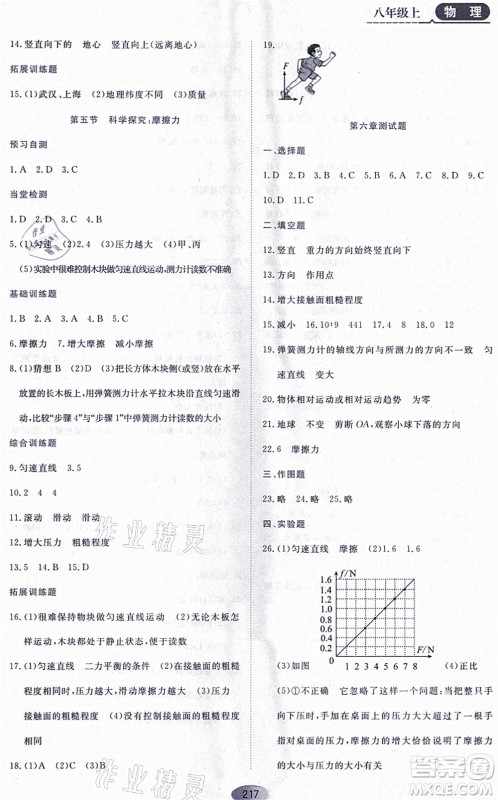 八年级上 物 理
14.竖直向下的 地心 竖直向上(远离地心)
拓展训练题
15.(1)武汉、上海 (2)地理纬度不同 (3)质量
第五节 科学探究:摩擦力
预习自测
1.A 2.D 3.C
当堂检测
1.B 2.D 3.C 4.D
5.(1)匀速 (2)2.4 (3)压力越大 (4)甲、丙
(5)实验中很难控制木块做匀速直线运动,测力计读数不准确
基础训练题
1.B 2.A 3.D 4.C 5.A
6.摩擦力 7.增大摩擦 减小摩擦
8.(1)猜想 B (2)把长方体木块侧(或竖)放在水平
放置的长木板上,用弹簧测力计水平拉木块匀速滑
动,比较“步骤4”与“步骤1”中弹簧测力计读数的大小
综合训练题
9.匀速直线 3.5
10.2 4 4
11.滚动 滑动 滑动
12.增大压力 粗糙程度
13.5 14.B 15.D
拓展训练题
16.(1)很难保持物块做匀速直线运动 (2)无论木板怎
样运动,木块都处于静止状态,便于读数
17.(1)匀速直线 二力平衡的条件 (2)在接触面的粗糙
程度相同时,压力越大,滑动摩擦力越大 (3)在压力
相同时,接触面越粗糙,滑动摩擦力越大 (4)压力
接触面的粗糙程度 (5)没有控制接触面的粗糙程度
相同
18.(1)A (2)C (3)B
19.
F
f
第六章测试题
一、选择题
1.B 2.C 3.D 4.A 5.C 6.B 7.C 8.D
9.D 10.A 11.C
二、填空题
12.竖直 重力的方向始终竖直向下
13.方向 作用点
14.增大接触面粗糙程度
15.减小 16.10:9 441 17.2 18.0 12
19.弹簧测力计的轴线方向与所测力的方向不一致 匀
速直线 变大
20.物体相对运动或有相对运动趋势 为零
21.地球 不变 剪断OA,观察小球下落的方向
22.6 摩擦力
三、作图题
23.略 24.略 25.略
四、实验题
26.(1)匀速直线 摩擦 (2)1.6 2
f/N
1.6
1.4
1.2
1.0
0.8
0.6
0.4
0.2
0 1 2 3 4 5 6 7 8 F/N
(3)如图 (4)正比
(5)①不正确 它忽略了这样一个问题:当受到竖直
向下压时,手加在桌面上的压力大大超过了一根手
指的重力,增加的摩擦力恰恰说明了滑动摩擦力的
大小与压力大小有关
217
作业精灵